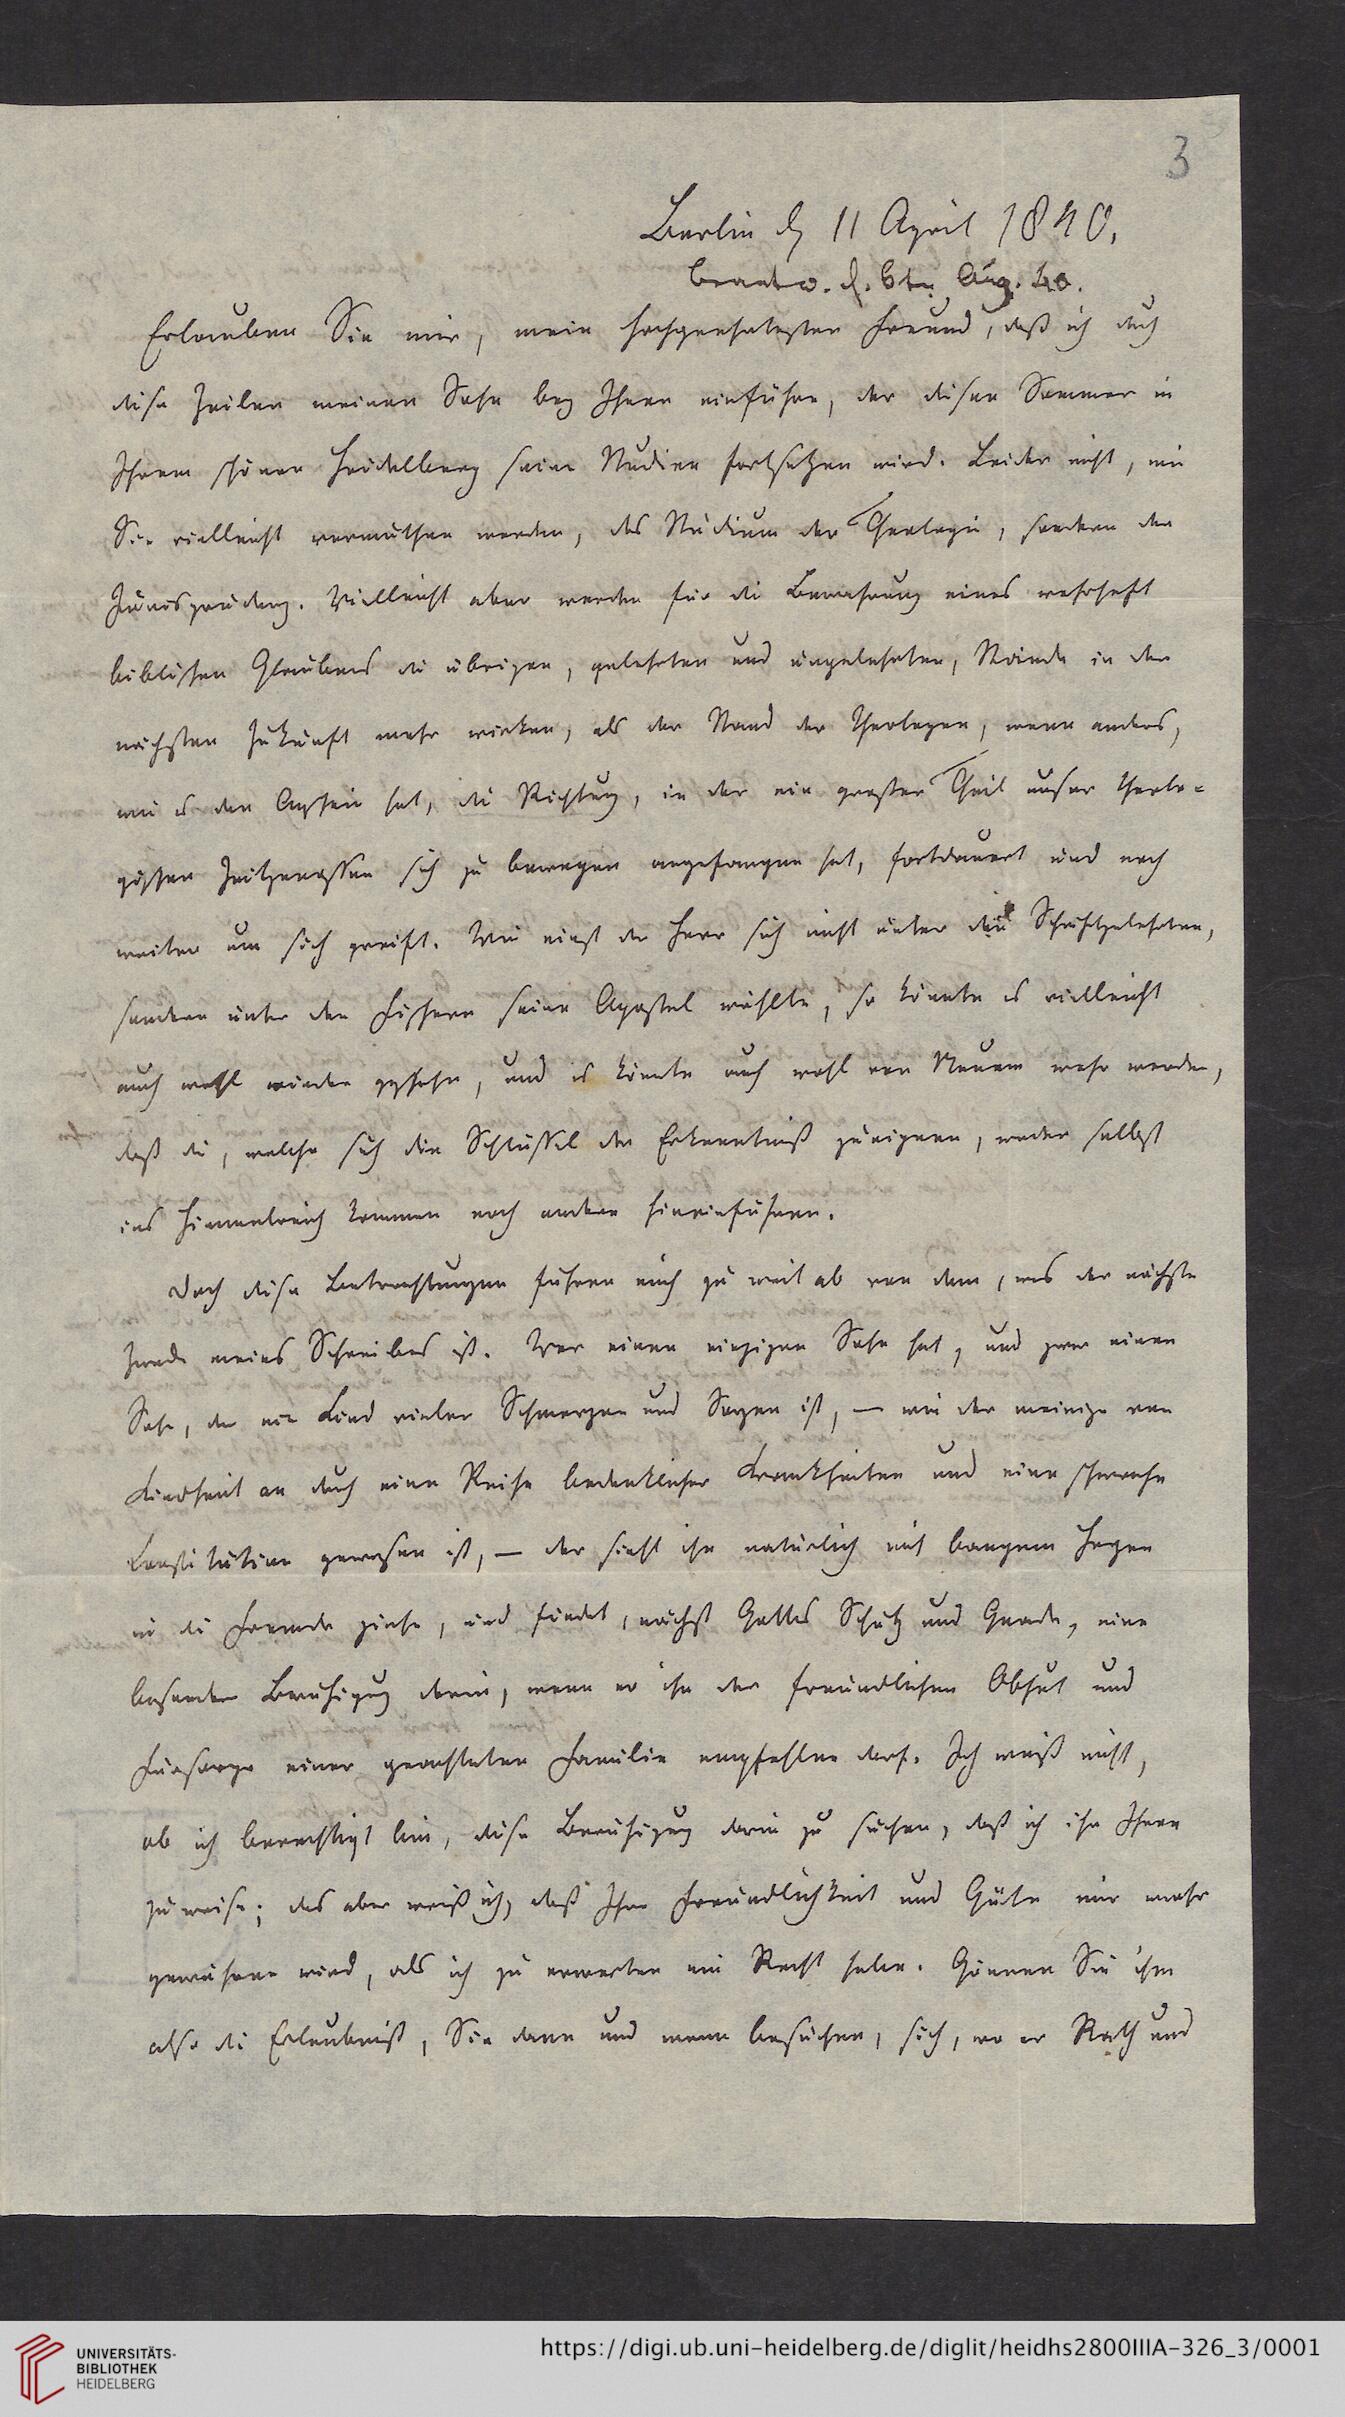 3
Berlin d. 11 April 1840.
beantw. d. 6ten Aug. 40.
Erlauben Sie mir, mein hochgeehrtester Freund, daß ich durch
diese Zeilen meinen Sohn bey Ihnen einführe, der diesen Sommer in
Ihrem schönen Heidelberg seine Studien fortsetzen wird. Leider nicht, wie
Sie vielleicht vermuthen werden, das Studium der Theologie, sondern der
Jurisprudenz. Vielleicht aber werden für die Bewahrung eines wahrhaft
biblischen Glaubens die übrigen, gelehrten und ungelehrten, Stände in der
nächsten Zukunft mehr wirken, als der Stand der Theologen, wenn anders,
wie es den Anschein hat, die Richtung, in der ein großer Theil unsrer theolo-
gischen Zeitgenossen sich zu bewegen angefangen hat, fortdauert und noch
weiter um sich greift. Wie einst der Herr sich nicht unter den Schriftgelehrten,
sondern unter den Fischern seine Apostel wählte, so könnte es vielleicht
auch wohl wieder geschehn, und es könnte auch wohl von Neuem wahr werden,
daß die, welche sich den Schlüssel der Erkenntniß zueignen, weder selbst
ins Himmelreich kommen noch andere hineinführen.
Doch diese Betrachtungen führen mich zu weit ab von dem, was der nächste
Zweck meines Schreibens ist. Wer einen einzigen Sohn hat, und zwar einen
Sohn, der ein Kind vieler Schmerzen und Sorgen ist, — wie der meinige von
Kindheit an durch eine Reihe bedenklicher Krankheiten und eine schwache
Constitution gewesen ist, — der sieht ihn natürlich mit bangem Herzen
in die Fremde ziehn, und findet, nächst Gottes Schutz und Gnade, eine
besondere Beruhigung darin, wenn er ihn der freundlichen Obhut und
Fürsorge einer geachteten Familie empfehlen darf. Ich weiß nicht,
ob ich berechtigt bin, diese Beruhigung darin zu suchen, daß ich ihn Ihnen
zuweise; das aber weiß ich, daß Ihre Freundlichkeit und Güte mir mehr
gewähren wird, als ich zu erwarten ein Recht habe. Gönnen Sie ihm
also die Erlaubniß, Sie dann und wann besuchen, sich, wo er Rath und
UNIVERSITÄTS-
BIBLIOTHEK
HEIDELBERG
https://digi.ub.uni-heidelberg.de/diglit/heidhs2800IIIA-326_3/0001